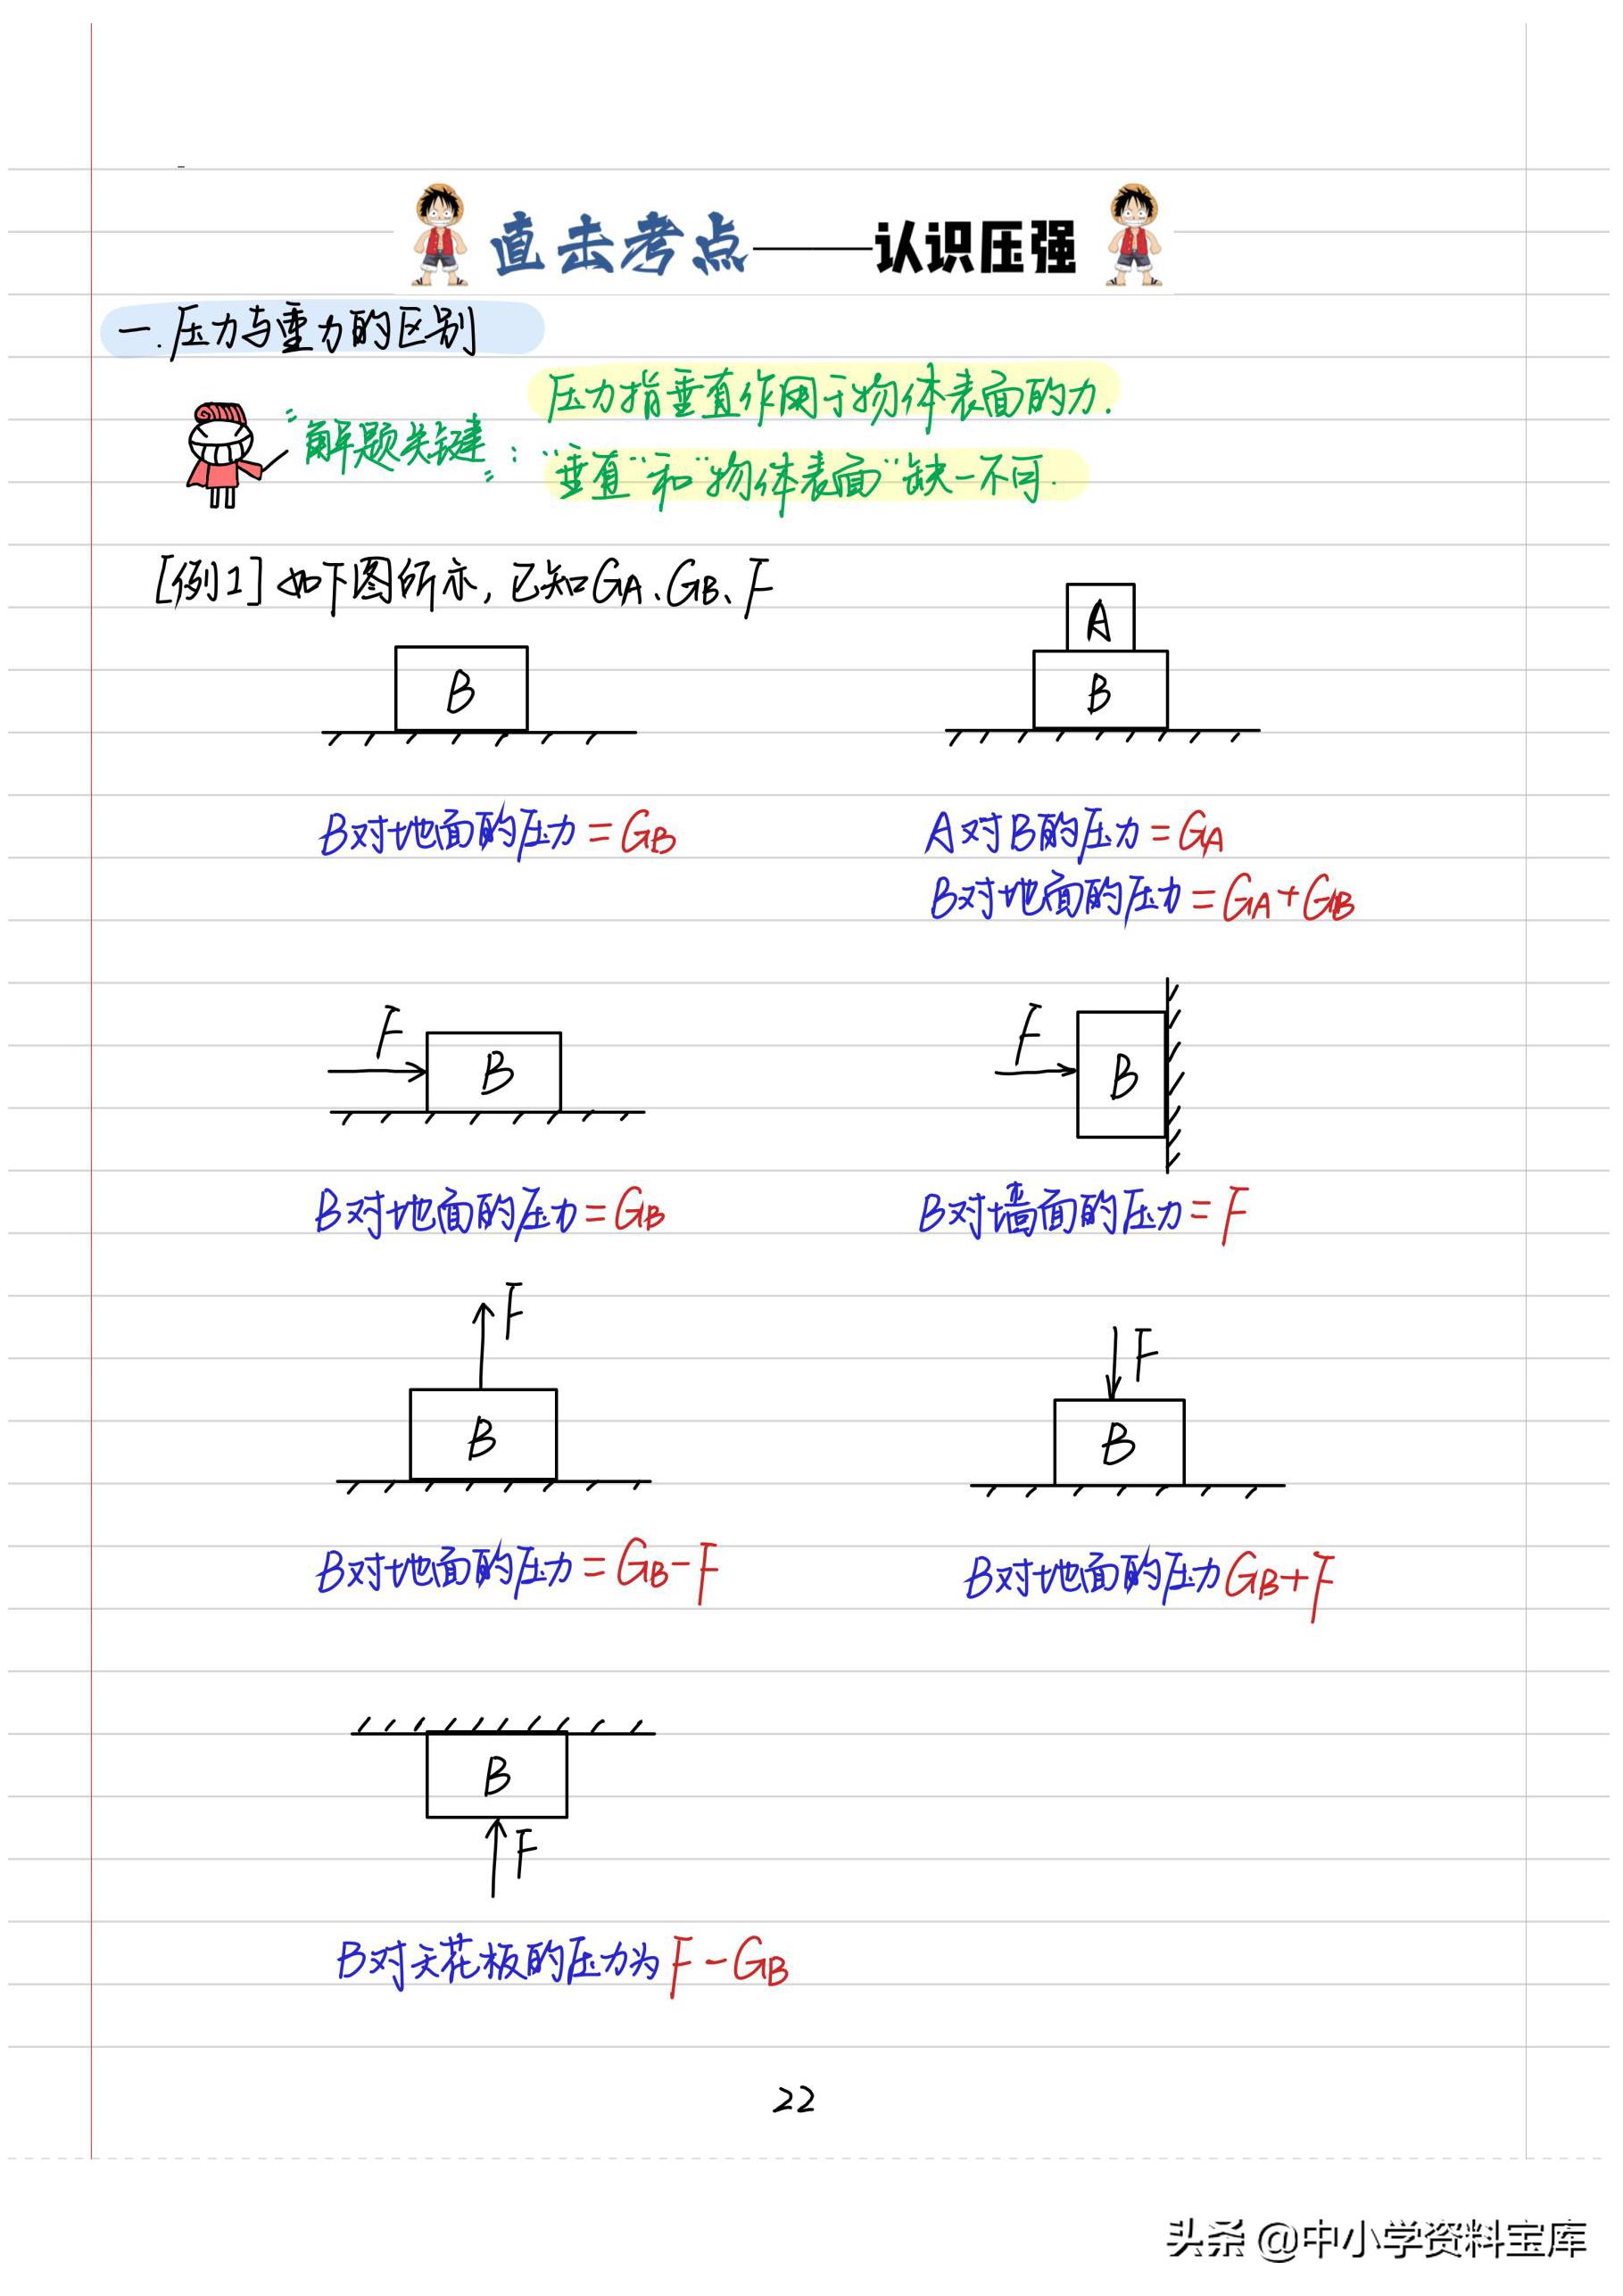 直击考点——认识压强
一.压力与重力的区别
压力指垂直作用于物体表面的力.
"解题关键":"垂直"和"物体表面"缺一不可.
[例1]如下图所示,已知GA、GB、F
A
B
B
B对地面的压力=GB
A对B的压力=GA
B对地面的压力=GA+GB
F
B
F
B
B对地面的压力=GB
B对墙面的压力=F
F
B
F
B
B对地面的压力=GB-F
B对地面的压力GB+F
B
F
B对天花板的压力为F-GB
22
头条@中小学资料宝库